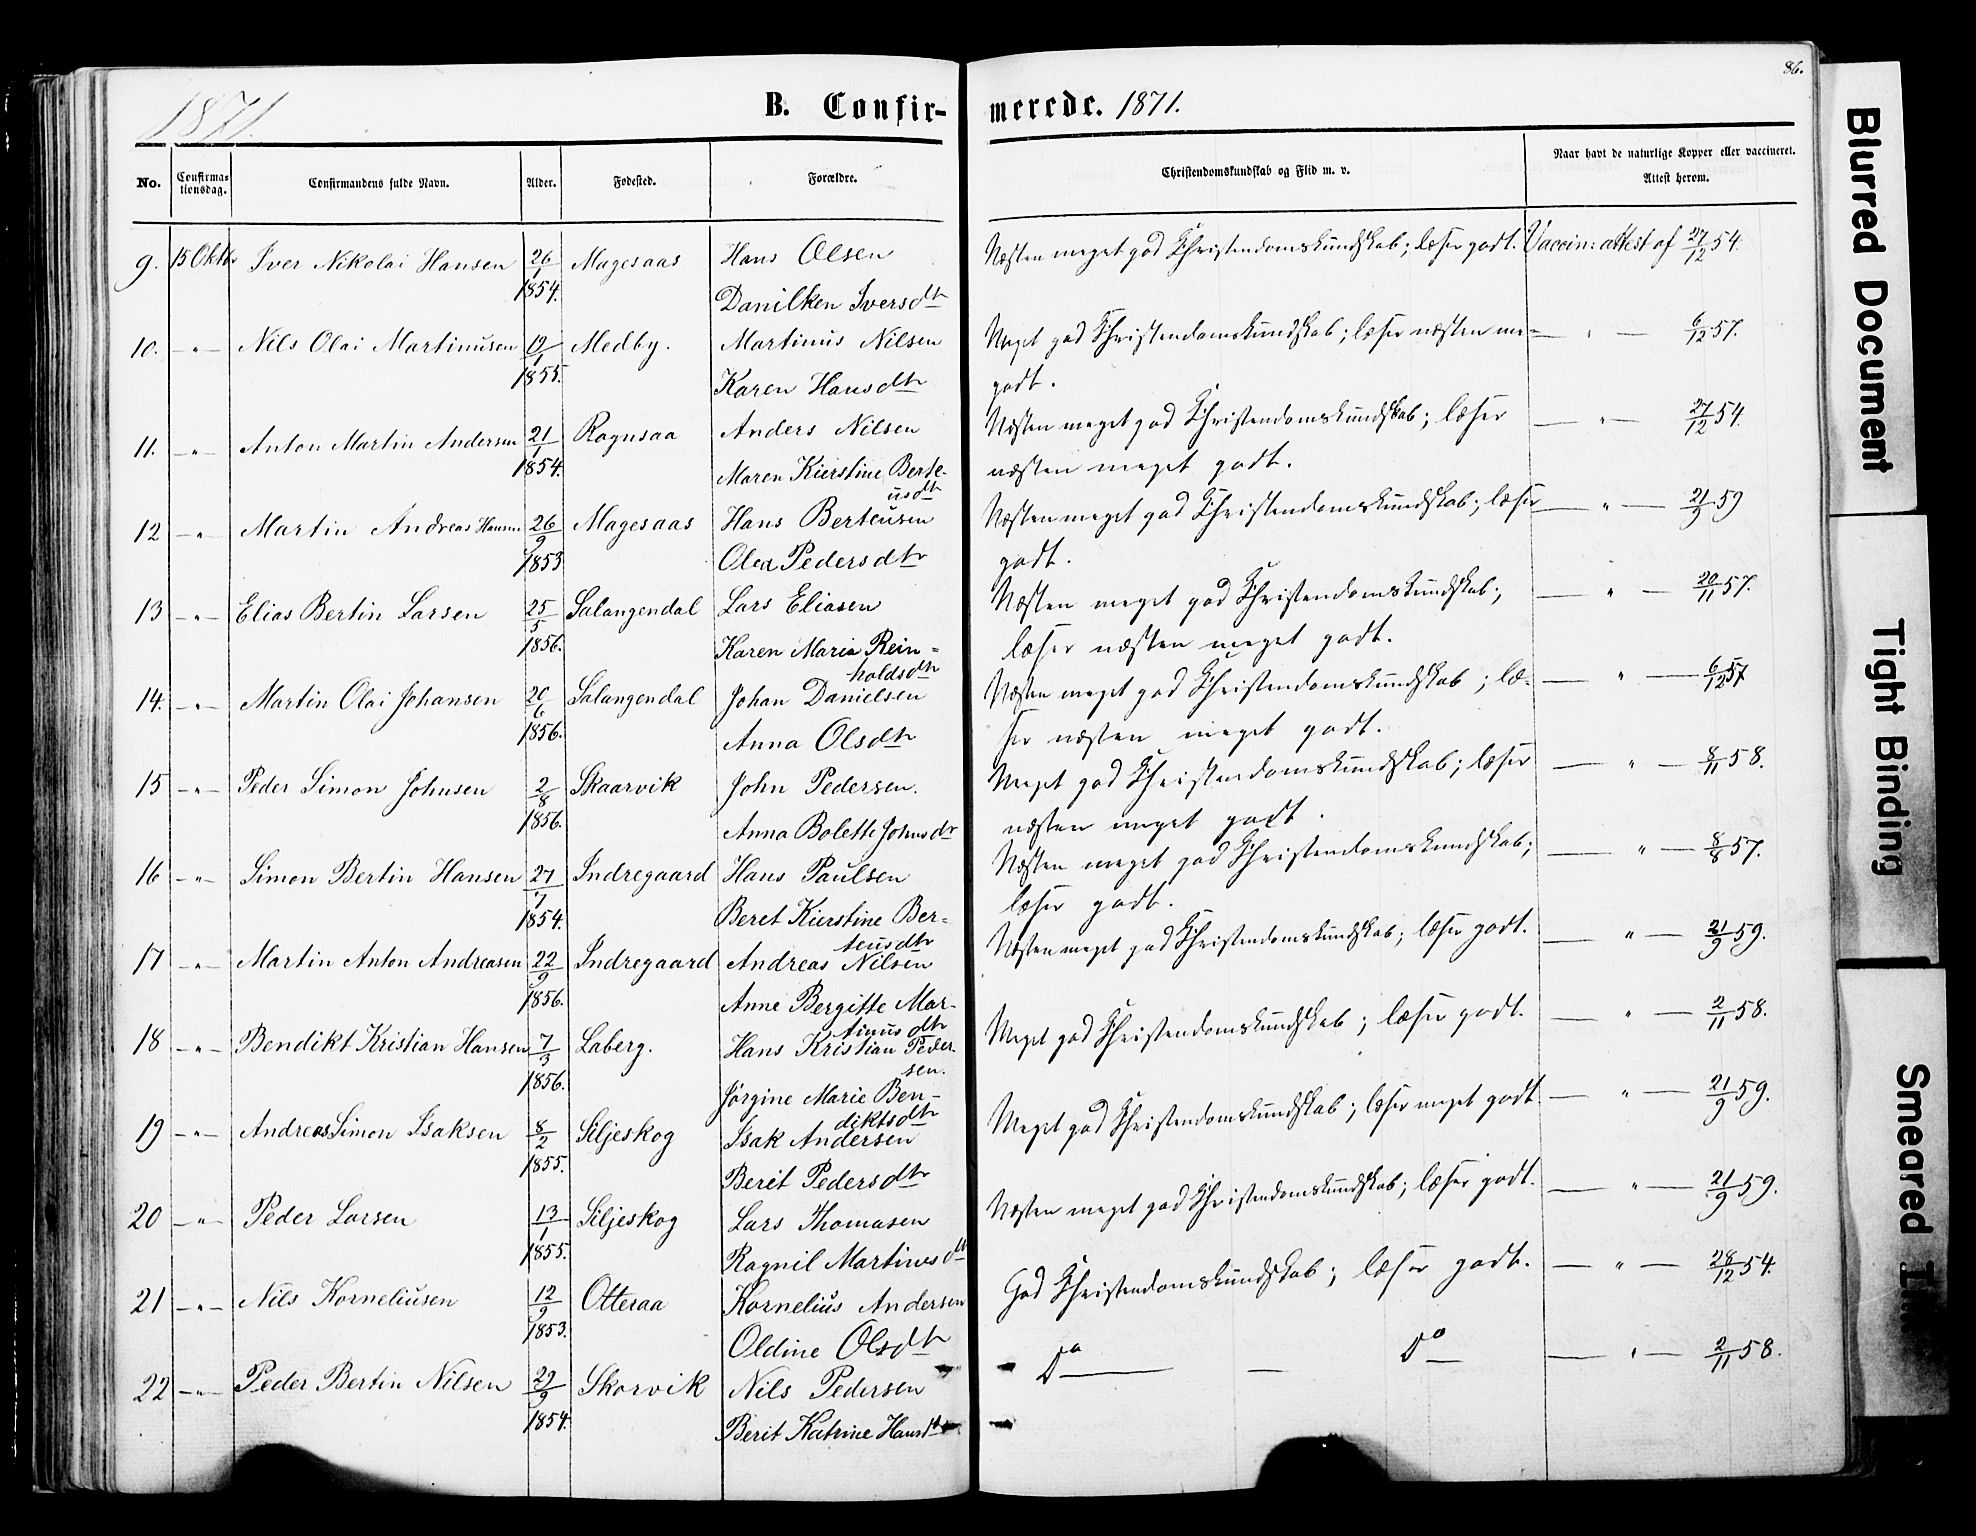 86.
1871.
B. Confir-
merede. 1871.
No.
Confirma-
tionsdag.
Confirmandens fulde Navn.
Alder.
Fodested.
Forældre.
Christendomskundskab og Flid m. v.
Naar havt de naturlige Kopper eller vaccineret.
Attest herom.
9. 15 Oktbr Iver Nikolai Hansen 26/1 Magesaas Hans Olsen Næsten meget god Christendomskundskab; læser godt. Vaccin: attest af 27/12 54.
1854. Danilken Iversdtr
10. —"— Nils Olai Martinusen 19/1 Medby. Martinus Nilsen Meget god Christendomskundskab; læser næsten me= — " — 6/12 57.
1855. Karen Hansdtr godt.
11. —"— Anton Martin Andersen 21/1 Rognsaa Anders Nilsen Næsten meget god Christendomskundskab; læser — " — 27/12 54.
1854. Maren Kierstine Berte- næsten meget godt.
usdtr
12 —"— Martin Andreas Hansen 26/9 Magesaas Hans Berteusen Næsten meget god Christendomskundskab; læser — " — 21/9 59
1853 Olea Pedersdtr godt.
13 —"— Elias Bertin Larsen 25/5 Salangendal Lars Eliasen Næsten meget god Christendomskundskab; — " — 20/11 57.
1856. Karen Maria Rein= læser næsten meget godt.
holdsdtr
14. —"— Martin Olai Johansen 20/6 Salangendal Johan Danielsen Næsten meget god Christendomskundskab; læ- — " — 6/12 57
1856. Anna Olsdtr ser næsten meget godt.
15 —"— Peder Simon Johnsen 2/8 Skaarvik John Pedersen. Meget god Christendomskundskab; læser — " — 8/11 58.
1856. Anna Bolette Johnsdr næsten meget godt.
16 —"— Simon Bertin Hansen 27/1 Indregaard Hans Paulsen Næsten meget god Christendomskundskab; — " — 8/8 57.
1854. Beret Kierstine Ber- læser godt.
teusdtr
17 —"— Martin Anton Andreasen 22/9 Indregaard Andreas Nilsen Næsten meget god Christendomskundskab; læser godt. — " — 21/9 59.
1856. Anne Bergitte Mar-
tinusdtr
18 —"— Bendikt Kristian Hansen 7/3 Laberg. Hans Kristian Peder- Meget god Christendomskundskab; læser godt. — " — 2/11 58.
sen.
1856. Jørgine Marie Ben-
diktsdtr
19 —"— Andreas Simon Isaksen 8/2 Siljeskog Isak Andersen Meget god Christendomskundskab; læser meget godt — " — 21/9 59.
1855. Berit Pedersdtr
20 —"— Peder Larsen 13/1 Siljeskog Lars Thomasen Næsten meget god Christendomskundskab; læser godt. — " — 21/9 59.
1855. Ragnil Martinusdtr
21 —"— Nils Korneliusen 12/9 Otteraa Kornelius Andersen God Christendomskundskab; læser godt. — " — 28/12 54.
1853. Oldine Olsdtr
22 —"— Peder Bertin Nilsen 29/9 Skorvik Nils Pedersen Do — Do — — " — 2/11 58.
1854. Berit Katrine Hansdtr
Blurred Document
Tight Binding
Smeared